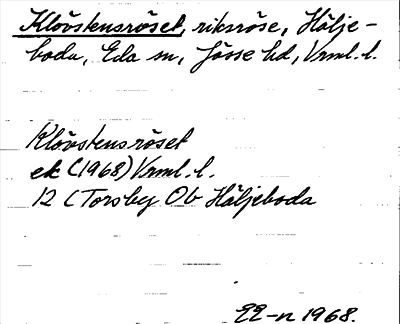 Klövstensröset, riksröse, Hälje-
boda, Eda sn, Jösse hd, Vrml. l.
Klövstensröset
ek (1968) Vrml. l.
12 C Torsby Ob Häljeboda
EE-n 1968.